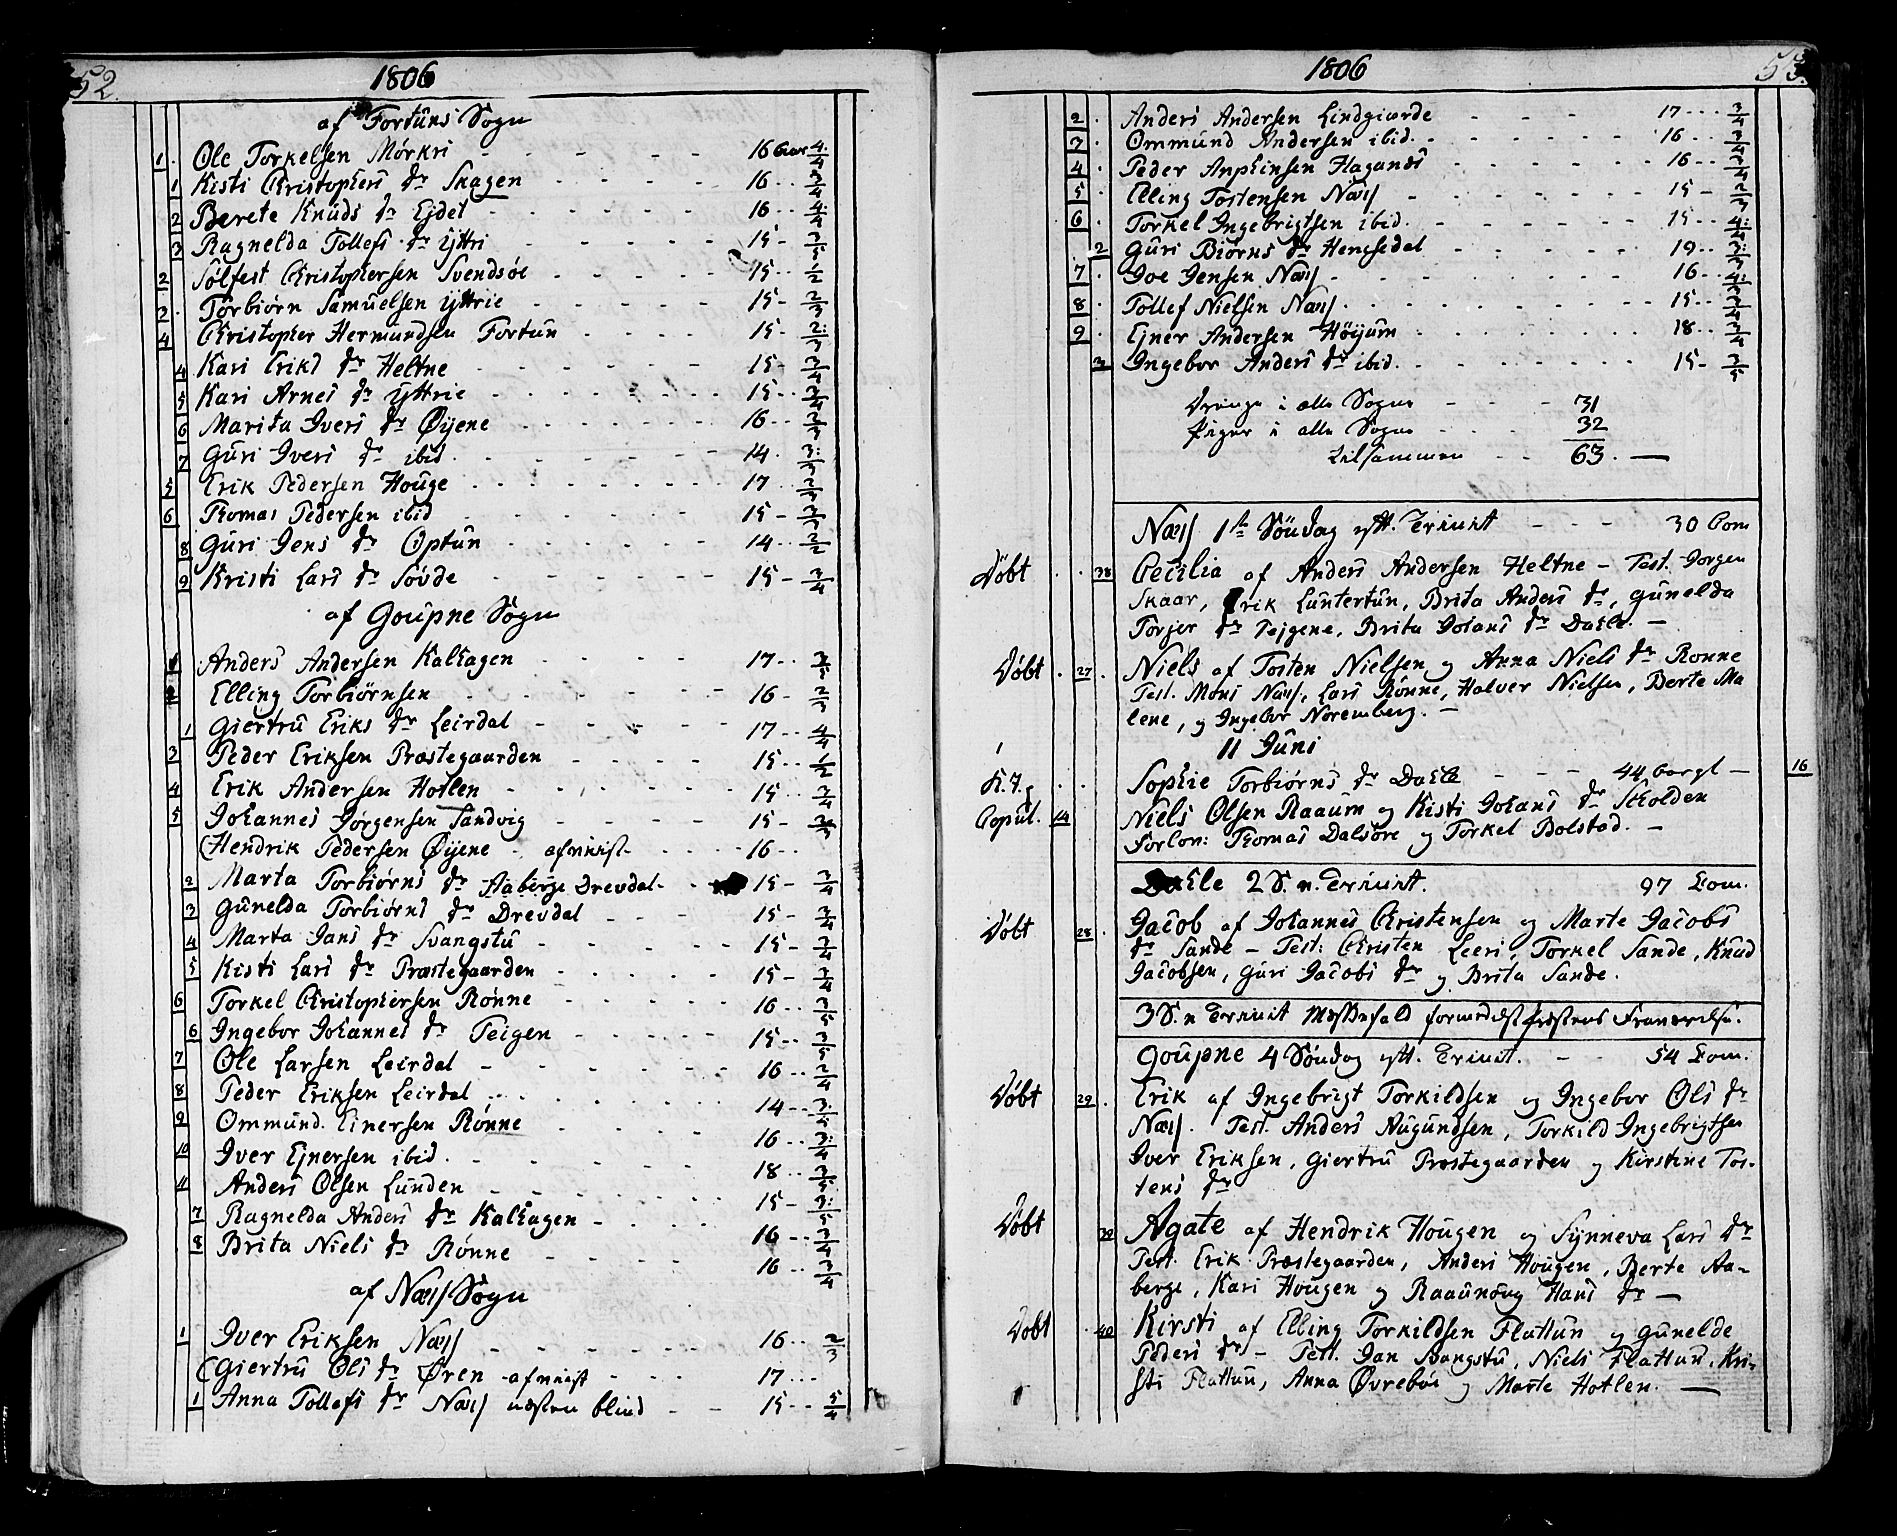 52.
1806
af Fortuns Sogn
1. Ole Torkelsen Mørkri - - - 16 Aar 4/4
1 Kisti Christophers dr Skagen - - - 16 -
2 Berete Knuds dr Ejdet - - - 16 - 4/4
3 Ragnelda Tollefs dr Yttri - - - 15 -
2 Sølfest Christophersen Svendsøe - - - 15 - 1/2
2. Torbiørn Samuelsen Yttrie - - - 15 - 2/3
4 Christopher Hermundsen Fortun - - - 15 -
4 Kari Eriks dr Heltne - - - 15 - 3/4
5 Kari Arnes dr Yttrie - - - 15 -
6 Marita Ivers dr Øyene - - - 16 -
7 Guri Ivers dr ibid - - - 14.
5 Erik Pedersen Houge - - - 17
6 Thomas Pedersen ibid - - - 15 -
8 Guri Jens dr Optun - - - 14 - 2/2
9 Kristi Lars dr Søvde - - - 15 - 3/4
af Goupne Sogn
1 Anders Andersen Kalhagen - - - 17 -
2 Elling Torbiørnsen - - - 16 - 2/3
1 Giertru Eriks dr Leirdal - - - 17 - 4/4
3 Peder Eriksen Præstegaarden - - - 15 - 1/2
4 Erik Andersen Hotlen - - - 15 - 3/4
5 Johannes Jørgensen Sandvig - - - 15 -
(Hendrik Pedersen Øyene - afviist - - - 16 -
2 Marta Torbiørns dr Aaberge Drevdal - - - 15 - 3/4
3 Gunelda Torbiørns dr Drevdal - - - 15 - 3/4
4 Marta Jans dr Svangstu - - - 15 - 3/4
5 Kisti Lars dr Præstegaarden - - - 15 - 3/4
6 Torkel Christophersen Rønne - - - 16 -
6 Ingebor Johannes dr Teigen - - - 15 -
7 Ole Larsen Leirdal - - - 16 - 2/4
8 Peder Eriksen Leirdal - - - 14 -
9 Ommund Einersen Rønne - - - 16 - 3/4
10 Iver Ejnersen ibid. - - - 18 -
11 Anders Olsen Lunden - - - 15 -
7 Ragnelda Anders dr Kalhagen - - - 16 -
8 Brita Niels dr Rønne - - - 16 - 3/4
af Næss Sogn
1 Iver Eriksen Næss - - - 16 - 2/3
(Giertru Ols dr Øren - afviist - - - 17 -
1 Anna Tollefs dr Næss næsten blind - - 15 - 5/4
1806
53.
2. Anders Andersen Lindgiærde - - - 17 - 3/4
3. Ommund Andersen ibid. - - - 16 -
4. Peder Anphinsen Hagands - - - 16 -
5. Elling Tostensen Næss - - - 15 -
6. Torkel Ingebrigtsen ibid. - - - 15 -
2 Guri Biørns dr Hemsedal - - - 19 -
7. Joe Jensen Næss - - - 16 -
8. Tollef Nielsen Næss - - - 15 -
9. Ejner Andersen Høyum - - - 18 -
3 Ingebor Anders dr ibid. - - - 15 -
Drenge i alle Sogne - - - 31
Piger i alle Sogne - - - 32
Tilsammen - - 63. -
Næss 1ste Søndag eft. Trinit - - - 30 Com
Døbt 38 Cecilia af Anders Andersen Heltne - Test. Jorgen
Skaar, Erik Luntertun, Brita Anders dr, Gunelda
Torjer dr Tejgene, Brita Johans dr Dahle. -
Døbt 27. Niels af Tosten Nielsen og Anna Niels dr Rønne
Test. Mons Næss, Lars Rønne, Halver Nielsen, Berte Ma
lene, og Ingebor Noremberg. -
11 Juni
K. J. Sophie Torbiørns dr Dahle - - - 44 gl - 16
Copul. 14 Niels Olsen Raaum og Kisti Johans dr Skolden
Forlov: Thomas Dalsøre og Torkel Bolstad. -
Dahle 2 S. n. Trinit. 97 Com.
Døbt 28. Jacob af Johannes Christensen og Marte Jacobs
dr Sande - Test: Christen Leeri, Torkel Sande, Knud
Jacobsen, Guri Jacobs dr og Brita Sande.
3 S. n Trinit Messefald formedelst Præstens Fraværelse.
Goupne 4 Søndag eft. Trinit. - - 54 Com.
Døbt 29. Erik af Ingebrigt Torkildsen og Ingebor Ols dr
Næss. Test. Anders Augundsen, Torkild Ingebrigtsen
Iver Eriksen, Giertru Præstegaarden og Kirstine Tos-
tens dr
Døbt 39 Agate af Hendrik Hougen og Synneva Lars dr
Test. Erik Præstegaarden, Anders Hougen, Berte Aa-
berge, Kari Hougen og Raaundug Hans dr -
Døbt 40 Kirsti af Elling Torkildsen Flattun og Gunelde
Peders dr - Test. Jan Svangstu, Niels Flattun, Kri-
sti Flattun, Anna Øvrebøe og Marte Hotlen. -